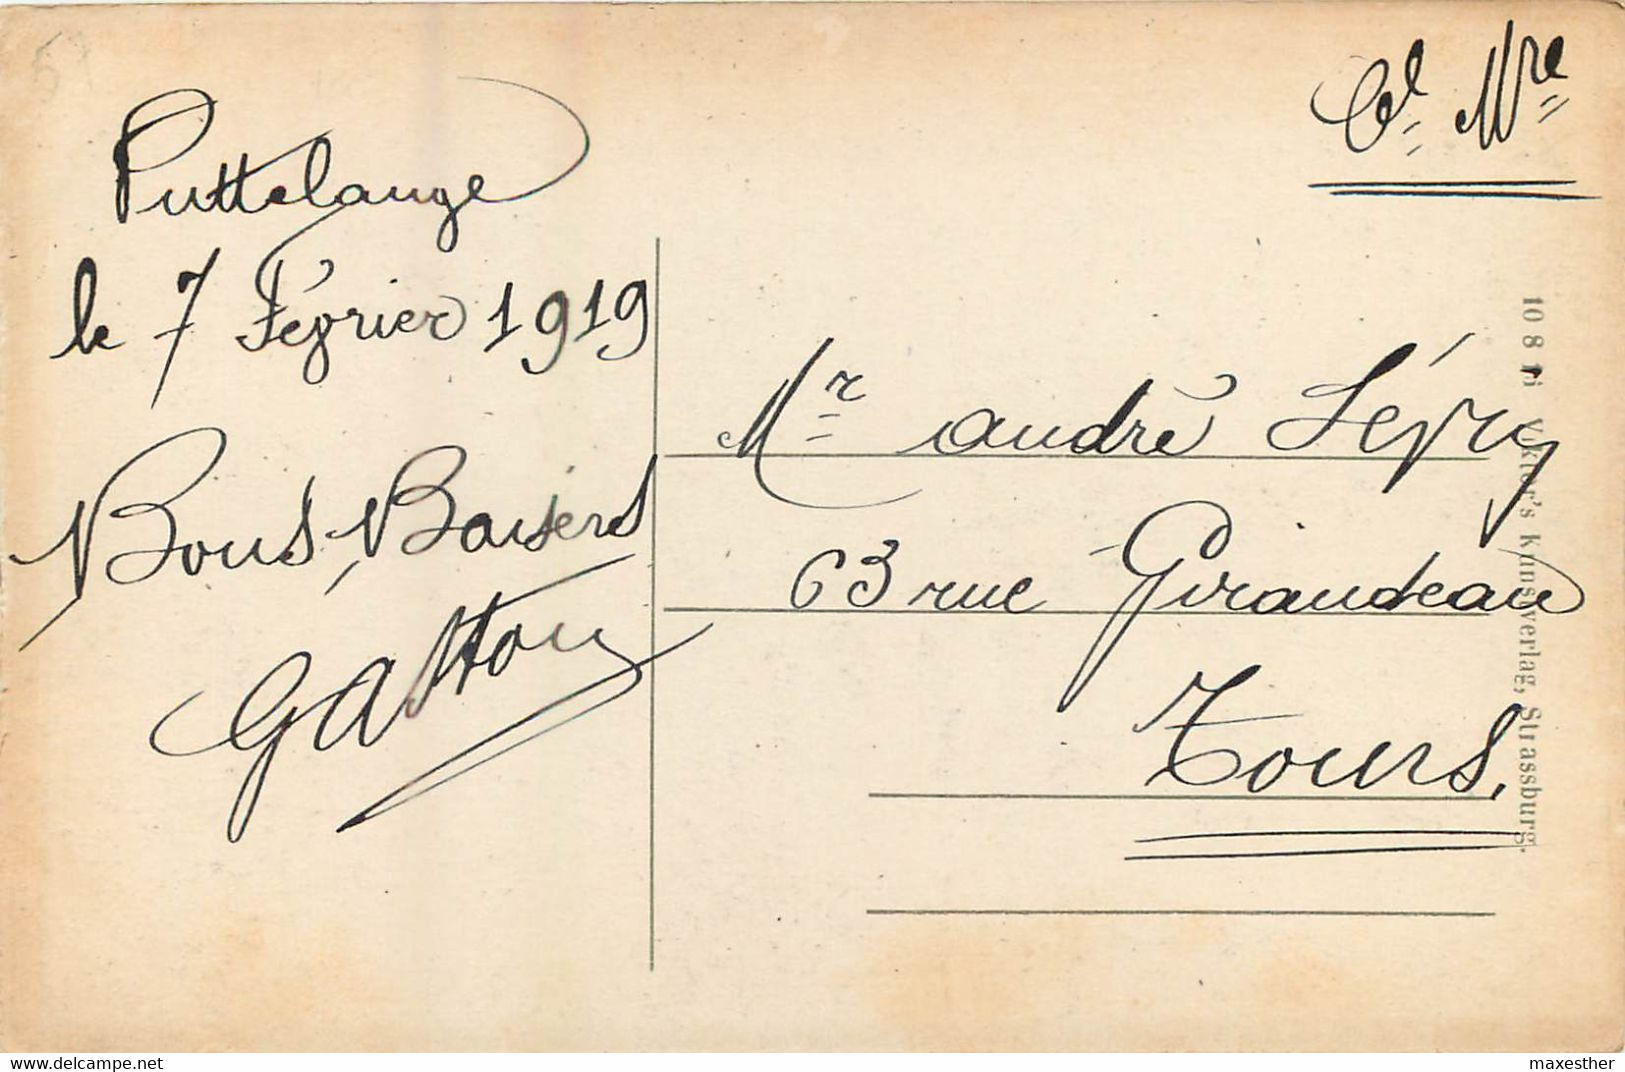 57
Puttelange
le 7 Février 1919
Bons Baisers
Gaston
Cel. Mre
Mr André Sévry
63 rue Giraudeau
Tours.
Viktor's Kunstverlag, Strassburg.
www.delcampe.net
maxesther